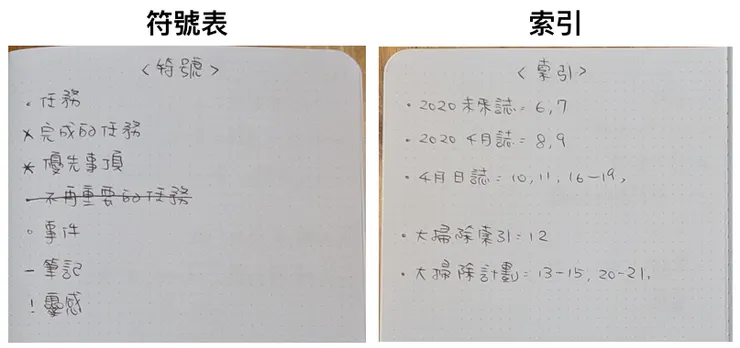 符號表
<符號>
• 任務
× 完成的任務
* 優先事項
• 不再重要的任務
○ 事件
— 筆記
! 靈感
索引
<索引>
• 2020 未來誌 = 6, 7
• 2020 4月誌 = 8, 9
• 4月日誌 = 10, 11, 16-19,
• 大掃除索引 = 12
• 大掃除計劃 = 13-15, 20-21,